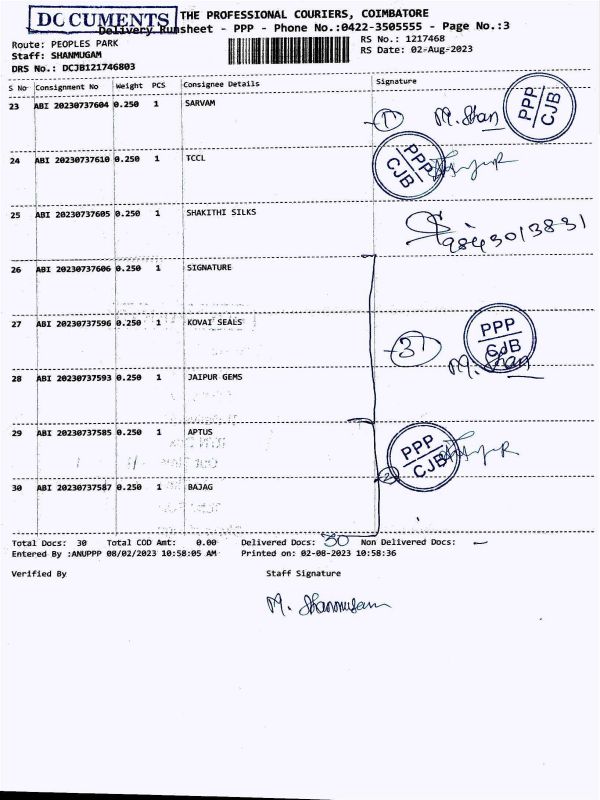 DOCUMENTS THE PROFESSIONAL COURIERS, COIMBATORE
Delivery Runsheet - PPP - Phone No.:0422-3505555 - Page No.:3
Route: PEOPLES PARK RS No.: 1217468
Staff: SHANMUGAM RS Date: 02-Aug-2023
DRS No.: DCJB121746803
S No Consignment No Weight PCS Consignee Details Signature
23 ABI 20230737604 0.250 1 SARVAM 1 M. Shan PPP CJB
24 ABI 20230737610 0.250 1 TCCL PPP CJB
25 ABI 20230737605 0.250 1 SHAKITHI SILKS 9843013831
26 ABI 20230737606 0.250 1 SIGNATURE
27 ABI 20230737596 0.250 1 KOVAI SEALS 3 PPP CJB
28 ABI 20230737593 0.250 1 JAIPUR GEMS M. Shan
29 ABI 20230737585 0.250 1 APTUS PPP CJB
30 ABI 20230737587 0.250 1 BAJAG 2
Total Docs: 30 Total COD Amt: 0.00 Delivered Docs: 30 Non Delivered Docs: -
Entered By :ANUPPP 08/02/2023 10:58:05 AM Printed on: 02-08-2023 10:58:36
Verified By Staff Signature
M. Shanmugam